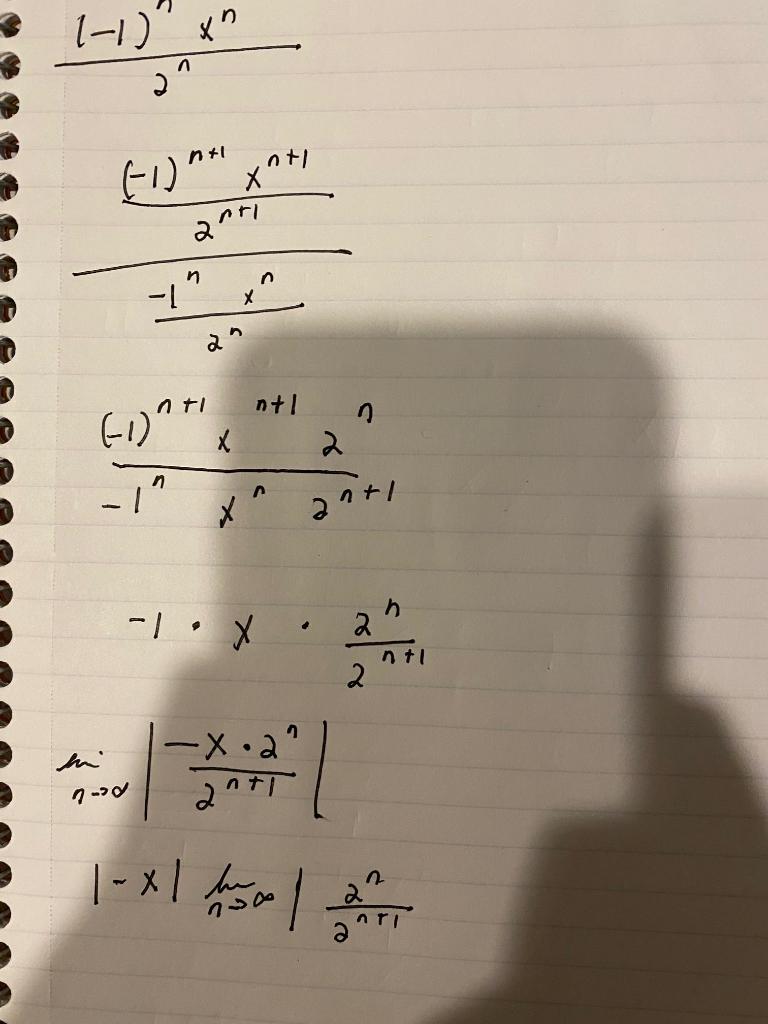 (-1)^n x^n / 2^n
((-1)^{n+1} x^{n+1} / 2^{n+1}) / (-1^n x^n / 2^n)
(-1)^{n+1} x^{n+1} 2^n / -1^n x^n 2^{n+1}
-1 · x · 2^n / 2^{n+1}
lim n→∞ | -x · 2^n / 2^{n+1} |
|-x| lim n→∞ | 2^n / 2^{n+1}